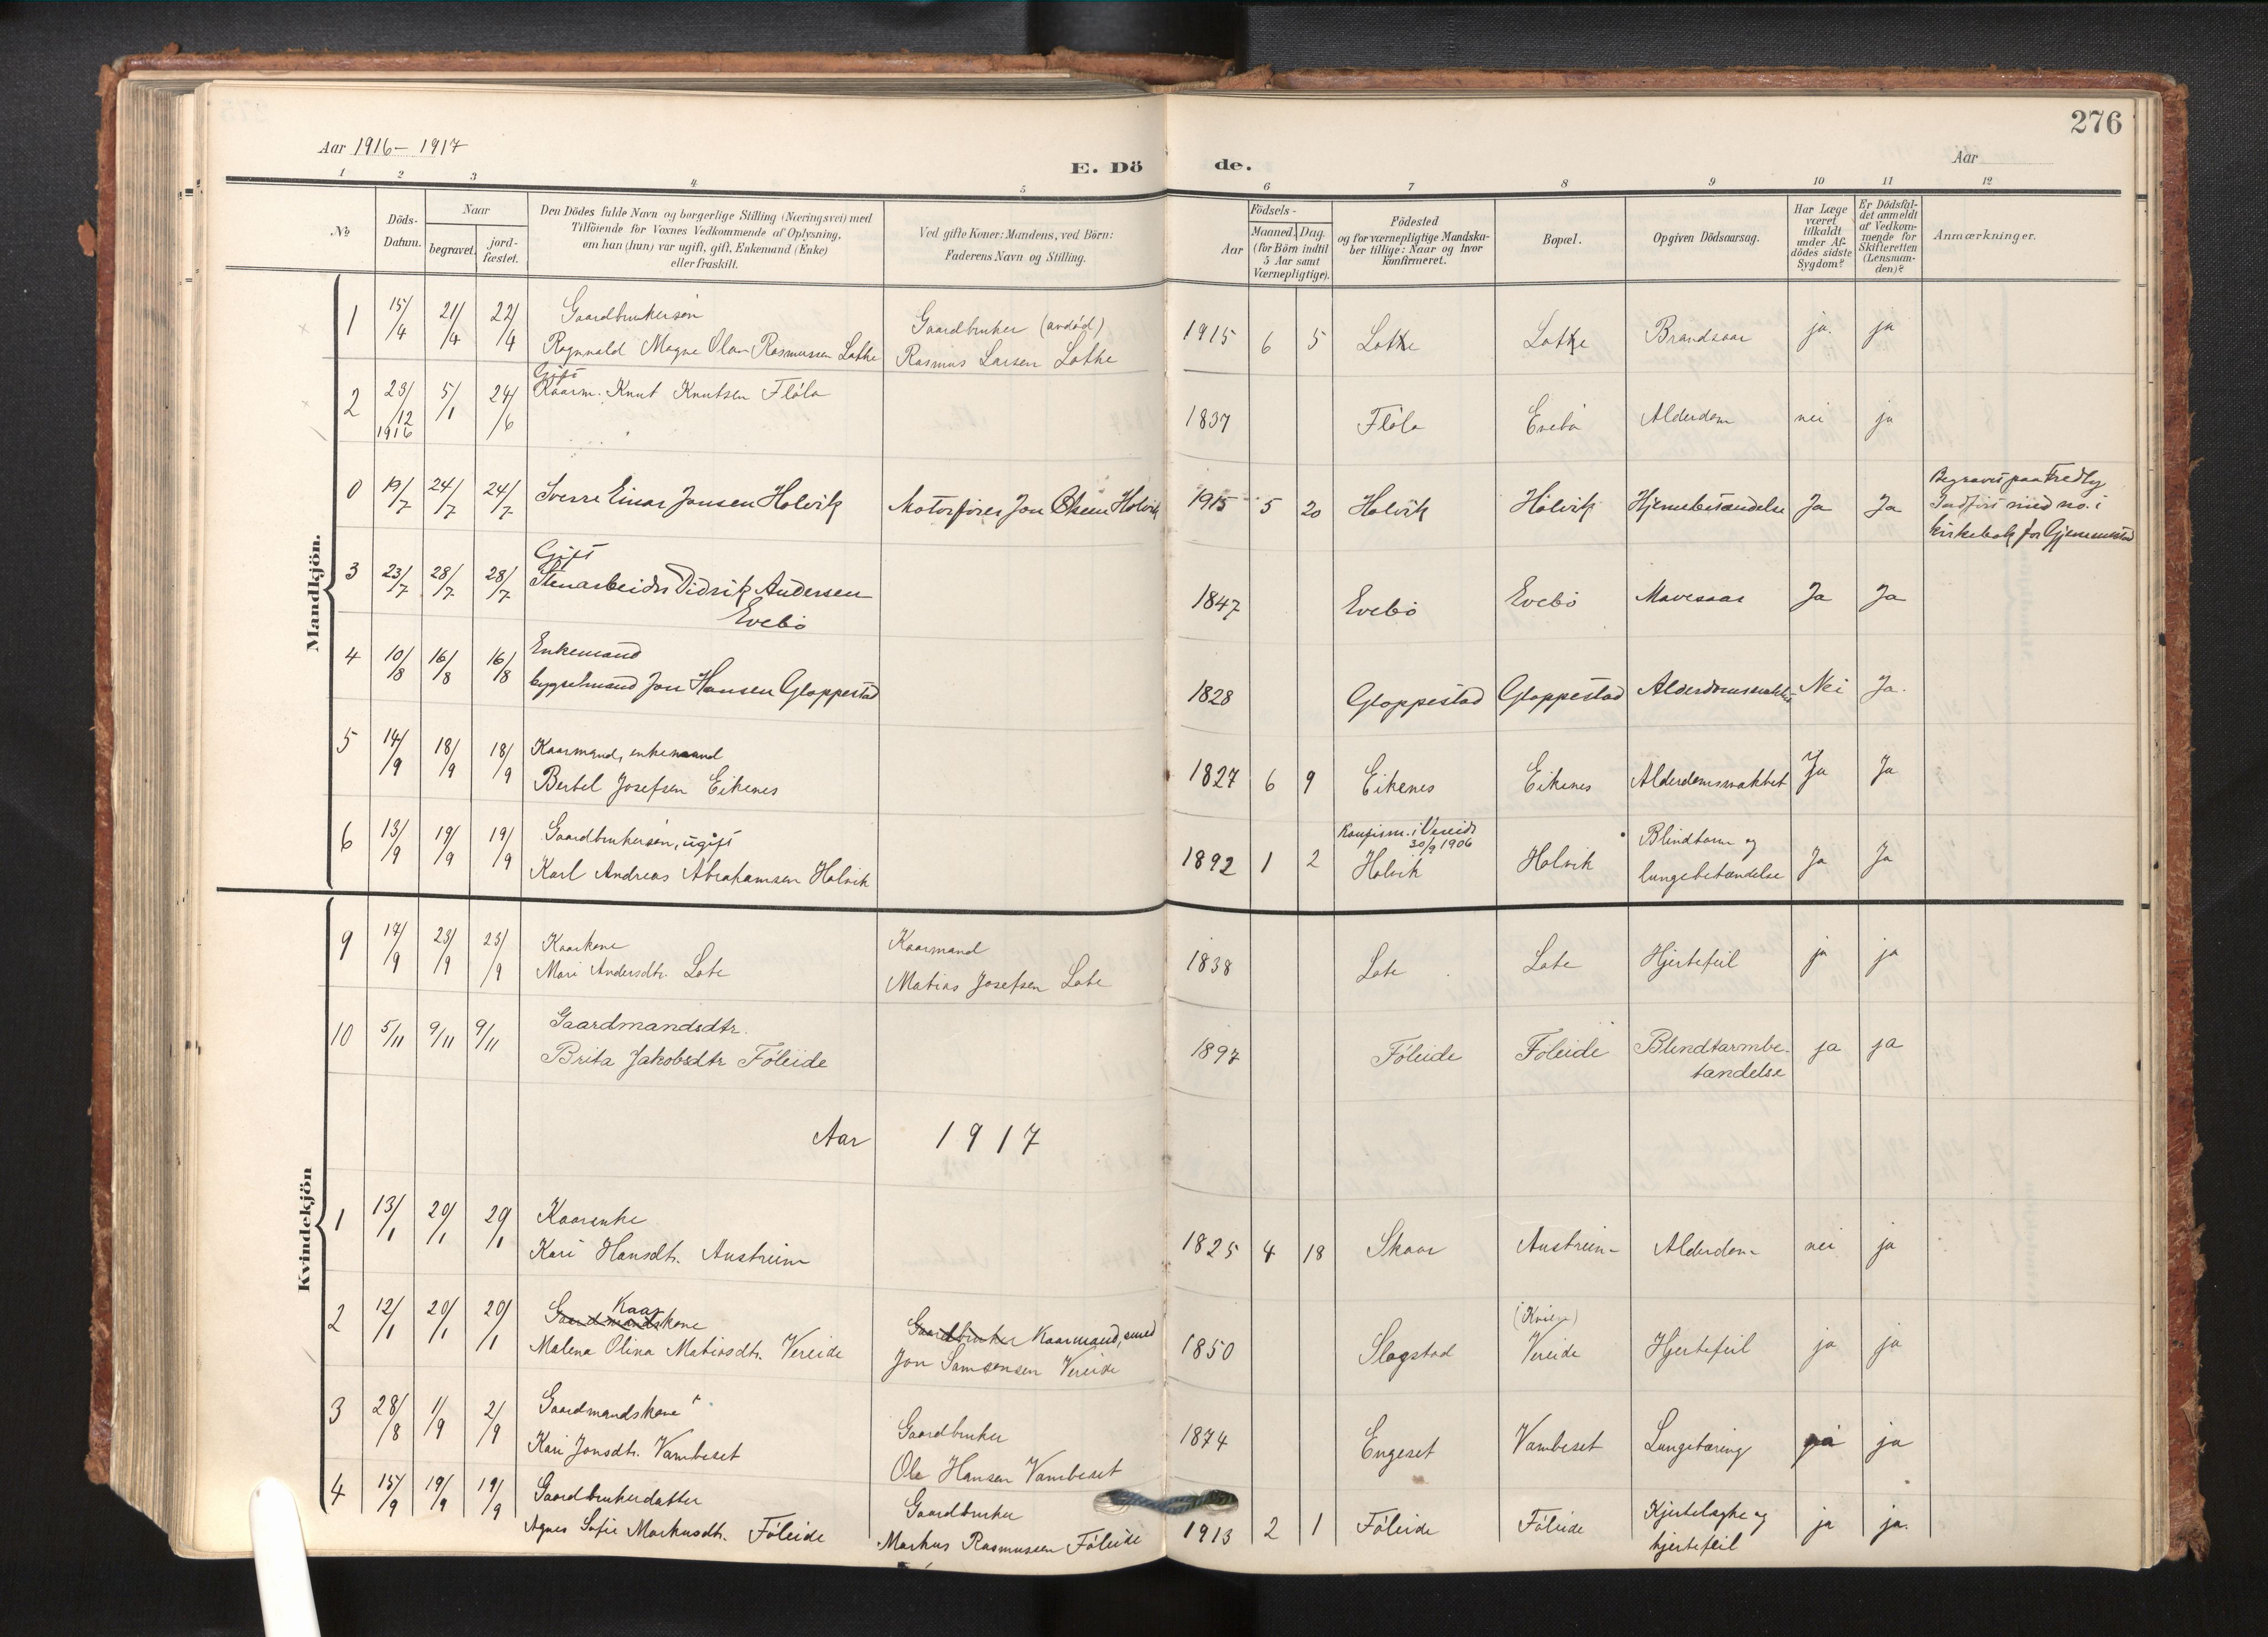 276
Aar 1916–1917
E. Dö de.
Aar
1 2 3 4 5 6 7 8 9 10 11 12
No
Döds-Datum.
Naar
begravet.
jord-fæstet.
Den Dödes fulde Navn og borgerlige Stilling (Næringsvei) med
Tilföiende for Voxnes Vedkommende af Oplysning,
om han (hun) var ugift, gift, Enkemand (Enke)
eller fraskilt.
Ved gifte Koner: Mandens, ved Börn:
Faderens Navn og Stilling.
Födsels-
Aar
Maaned. Dag.
(for Börn indtil
5 Aar samt
Værnepligtige).
Födested
og for værnepligtige Mandska-
ber tillige: Naar og hvor
konfirmeret.
Bopæl.
Opgiven Dödsaarsag.
Har Læge
været
tilkaldt
under Af-
dödes sidste
Sygdom?
Er Dödsfal-
det anmeldt
af Vedkom-
mende for
Skifteretten
(Lensman-
den)?
Anmærkninger.
Mandkjön.
1 15/4 21/4 22/4 Gaardbrukersøn
Ragnvald Magne Olav Rasmussen Lothe
Gaardbruker (avdød)
Rasmus Larsen Lothe
1915 6 5 Lothe Lothe Brandsaar ja. ja
2 23/12 1916 5/1 24/6 Gift
Kaarm. Knut Knutsen Fløla
1837 Fløla Evebø Alderdom nei ja
0 19/7 24/7 24/7 Sverre Einar Jonsen Holvik Motorfører Jon Olsen Holvik 1915 5 20 Holvik Holvik Hjernebetændelse Ja Ja
Begravet paa Fredly
Indført med no. i
kirkebok for Gjemmestad
3 23/7 28/7 28/7 Gift
Stenarbeider Didrik Andersen
Evebø
1847 Evebø Evebø Mavesaar Ja Ja
4 10/8 16/8 16/8 Enkemand
bygselmand Jon Hansen Gloppestad
1828 Gloppestad Gloppestad Alderdomssvakhet Nei Ja.
5 14/9 18/9 18/9 Kaarmand, enkemand
Bertel Josefsen Eikenes
1827 6 9 Eikenes Eikenes Alderdomssvakhet Ja Ja
6 13/9 19/9 19/9 Gaardbrukersøn, ugift
Karl Andreas Abrahamsen Holvik
1892 1 2 Konfirm. i Vereide
30/9 1906
Holvik Holvik Blindtarm og
lungebetændelse Ja Ja
Kvindekjön
9 17/9 23/9 23/9 Kaarkone
Mari Andersdtr. Lote
Kaarmand
Matias Josefsen Lote
1838 Lote Lote Hjertefeil ja ja
10 5/11 9/11 9/11 Gaardmandsdtr.
Brita Jakobsdtr Føleide
1897 Føleide Føleide Blindtarmbe-
tændelse ja ja
Aar 1917
1 13/1 20/1 20/1 Kaarenke
Kari Hansdtr. Austreim
1825 4 18 Skaar Austreim Alderdom nei ja
2 12/1 20/1 20/1 Kaar
Gaardmandskone
Malena Olina Matiasdtr. Vereide
Gaardbruker Kaarmand, smed
Jon Samsonsen Vereide
1850 Slagstad Vereide Hjertefeil ja ja
3 28/8 1/9 2/9 Gaardmandskone
Kari Jonsdtr. Vambeset
Gaardbruker
Ole Hansen Vambeset
1874 Engeset Vambeset Lungetæring ja ja
4 15/9 19/9 19/9 Gaardbrukerdatter
Agnes Sofie Markusdtr. Føleide
Gaardbruker
Markus Rasmussen Føleide
1913 2 1 Føleide Føleide Hjertelagke og
hjertefeil ja ja.